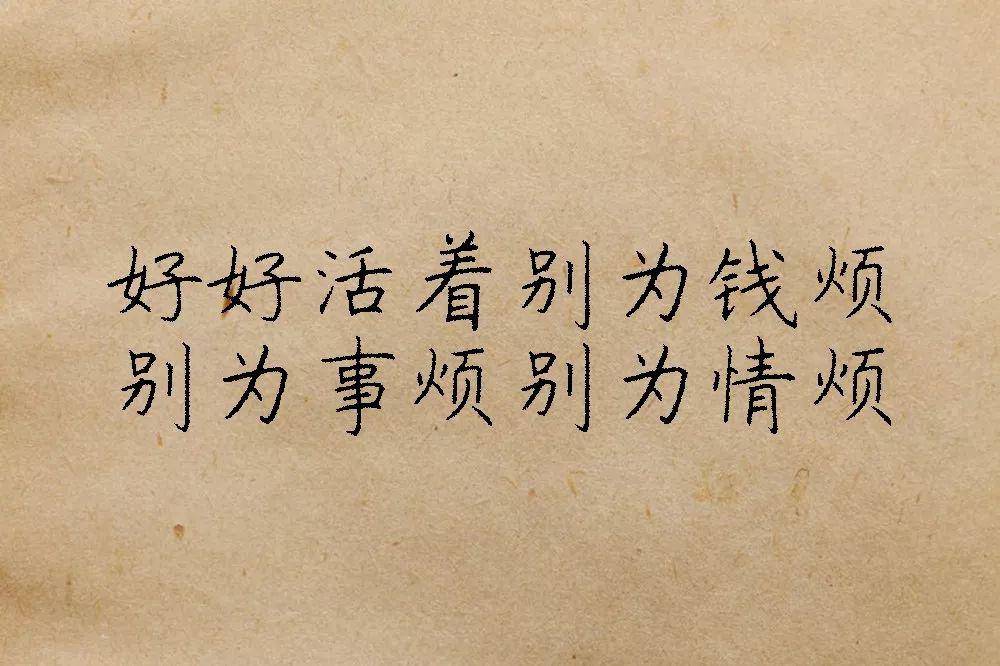 好好活着别为钱烦
别为事烦别为情烦